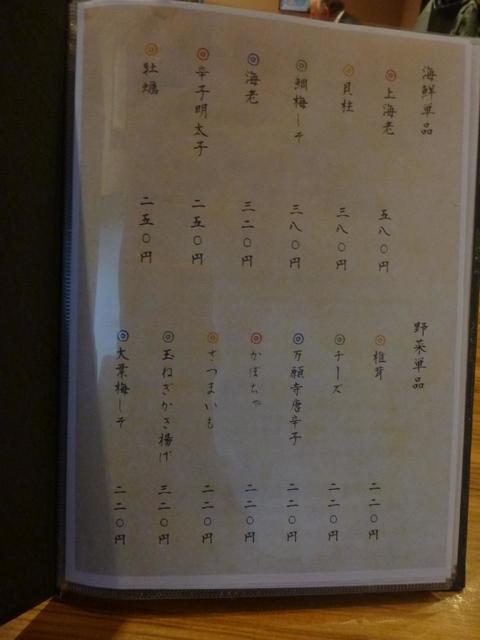 海鮮単品
◎上海老 五八〇円
◎貝柱 三八〇円
◎鯛梅しそ 三八〇円
◎海老 三二〇円
◎辛子明太子 二五〇円
◎牡蠣 二五〇円
野菜単品
◎椎茸 二二〇円
◎チーズ 二二〇円
◎万願寺唐辛子 二二〇円
◎かぼちゃ 二二〇円
◎さつまいも 二二〇円
◎玉ねぎかき揚げ 三二〇円
◎大葉梅しそ 二二〇円